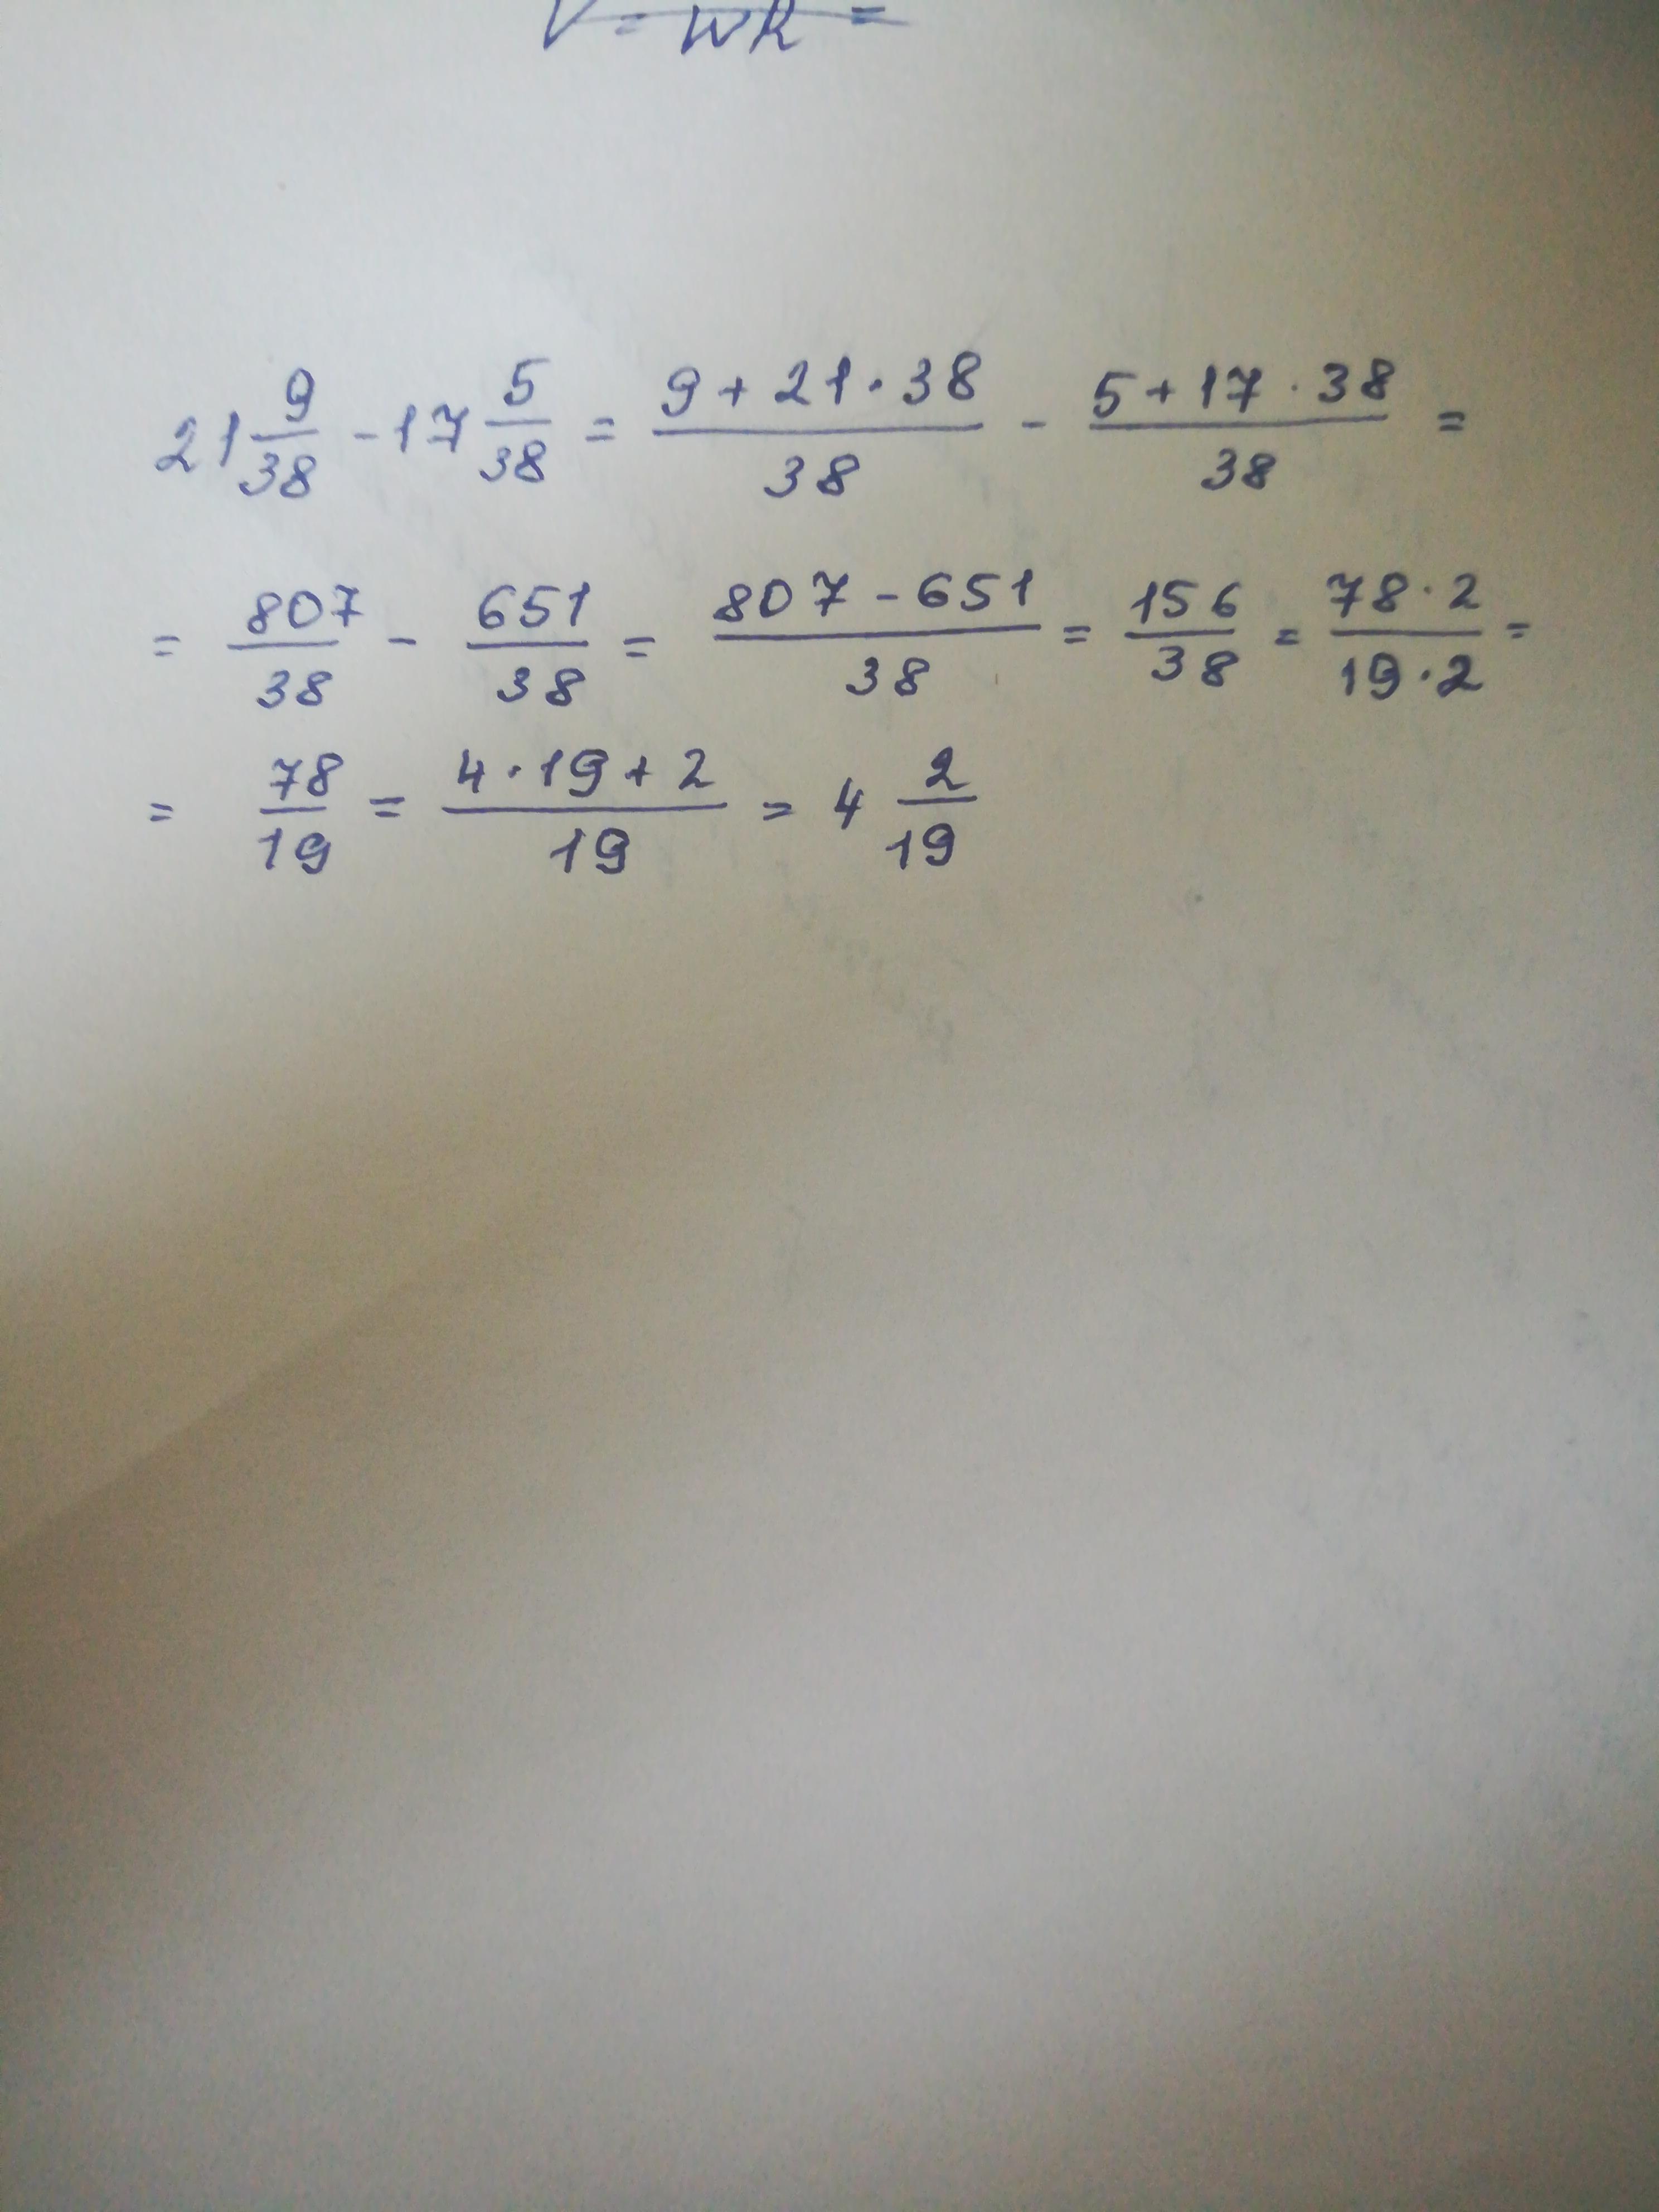 V = WR =
21 9/38 - 17 5/38 = (9 + 21 · 38)/38 - (5 + 17 · 38)/38 =
= 807/38 - 651/38 = (807 - 651)/38 = 156/38 = (78 · 2)/(19 · 2) =
= 78/19 = (4 · 19 + 2)/19 = 4 2/19